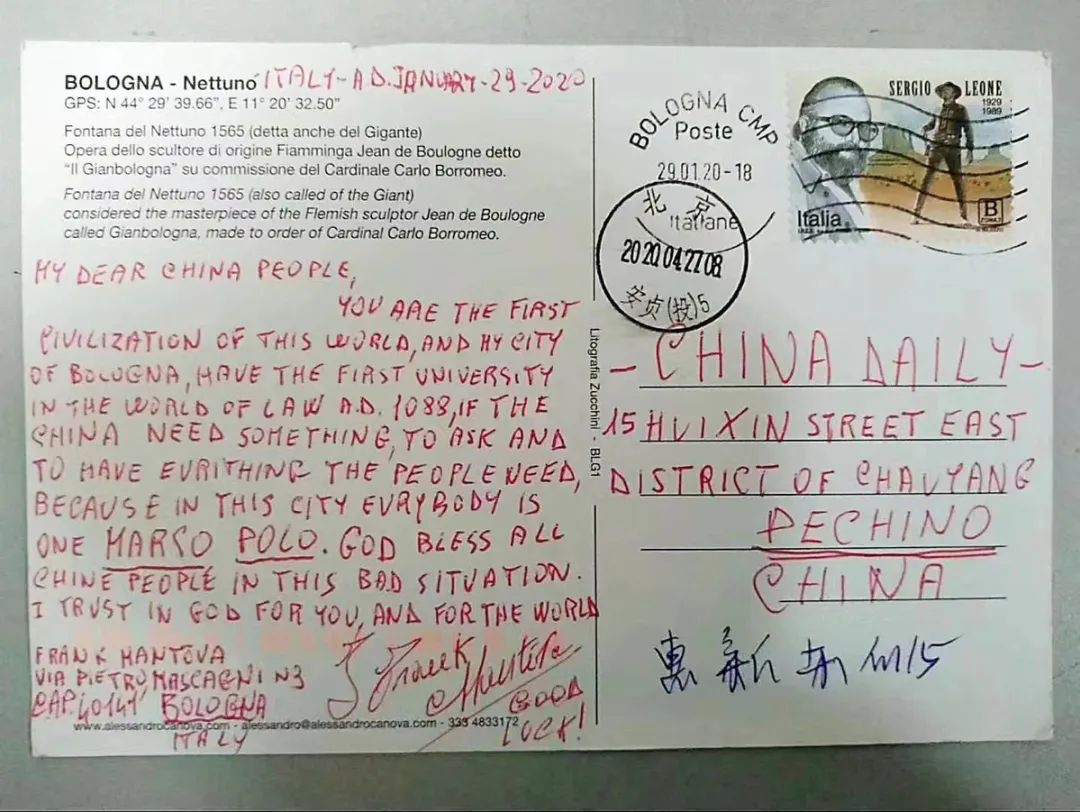 BOLOGNA - Nettuno ITALY - A.D. JANUARY - 29 - 2020
GPS: N 44° 29' 39.66", E 11° 20' 32.50"
Fontana del Nettuno 1565 (detta anche del Gigante)
Opera dello scultore di origine Fiamminga Jean de Boulogne detto
"Il Gianbologna" su commissione del Cardinale Carlo Borromeo.
Fontana del Nettuno 1565 (also called of the Giant)
considered the masterpiece of the Flemish sculptor Jean de Boulogne
called Gianbologna, made to order of Cardinal Carlo Borromeo.
MY DEAR CHINA PEOPLE,
YOU ARE THE FIRST
CIVILIZATION OF THIS WORLD, AND MY CITY
OF BOLOGNA, HAVE THE FIRST UNIVERSITY
IN THE WORLD OF LAW A.D. 1088, IF THE
CHINA NEED SOMETHING, TO ASK AND
TO HAVE EVRITHING THE PEOPLE NEED,
BECAUSE IN THIS CITY EVRYBODY IS
ONE MARCO POLO. GOD BLESS ALL
CHINE PEOPLE IN THIS BAD SITUATION.
I TRUST IN GOD FOR YOU, AND FOR THE WORLD
FRANK MANTOVA
VIA PIETRO MASCAGNI N3
CAP. 40141 BOLOGNA
ITALY
GOOD
LOCK!
www.alessandrocanova.com - alessandro@alessandrocanova.com - 333 4833172
Litografia Zucchini - BLG1
BOLOGNA CMP
Poste
29.01.20-18
Italiane
北京
2020.04.27.08
安贞(投)5
SERGIO LEONE
1929
1989
Italia
B
- CHINA DAILY -
15 HUIXIN STREET EAST
DISTRICT OF CHAUYANG
PECHINO
CHINA
惠新东街15